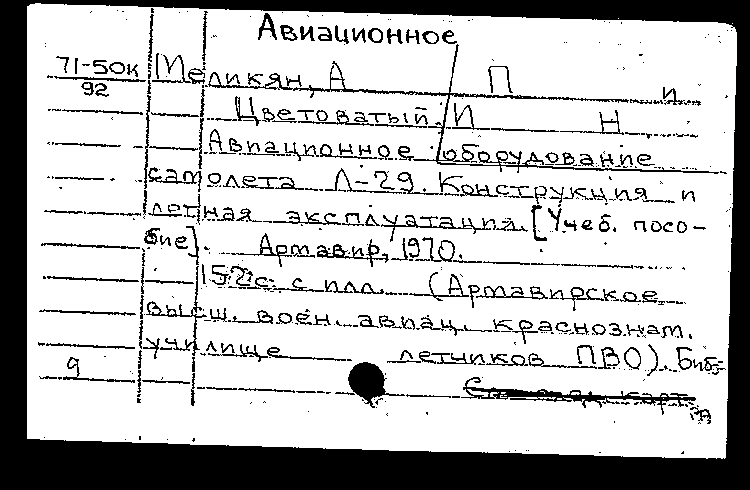 Авиационное
71-50к Меликян, А П и
92
Цветоватый, И Н
Авиационное оборудование
самолета Л-29. Конструкция и
летная эксплуатация. [Учеб. посо-
бие]. Армавир, 1970.
152с. с илл. (Армавирское
высш. воен. авиац. краснознам.
училище летчиков ПВО). Биб-
9